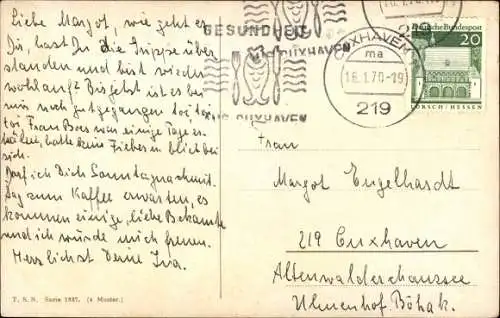 Liebe Margot, wie geht es
Du, hast Du die Grippe über
standen und bist wieder
wohlauf? Bis jetzt ist es bei
mir noch gutgegangen toi, toi,
toi Frau Boes war einige Tage er-
kältet, hatte kein Fieber
sich.
Darf ich Dich Sonntagnachmit.
tag zum Kaffee erwarten, es
kommen einige, liebe Bekannte
und ich würde mich freuen.
Herzlichst Deine Ina.
T. S. N. Serie 1887. (4 Muster.)
GESUNDHEIT
CUXHAVEN
AUS CUXHAVEN
CUXHAVEN
ma
16.1.70-19
219
Deutsche Bundespost
20
LORSCH/HESSEN
Frau
Margot Engelhardt
219 Cuxhaven
Altenwalderchaussee
Ulmenhof Böhak.